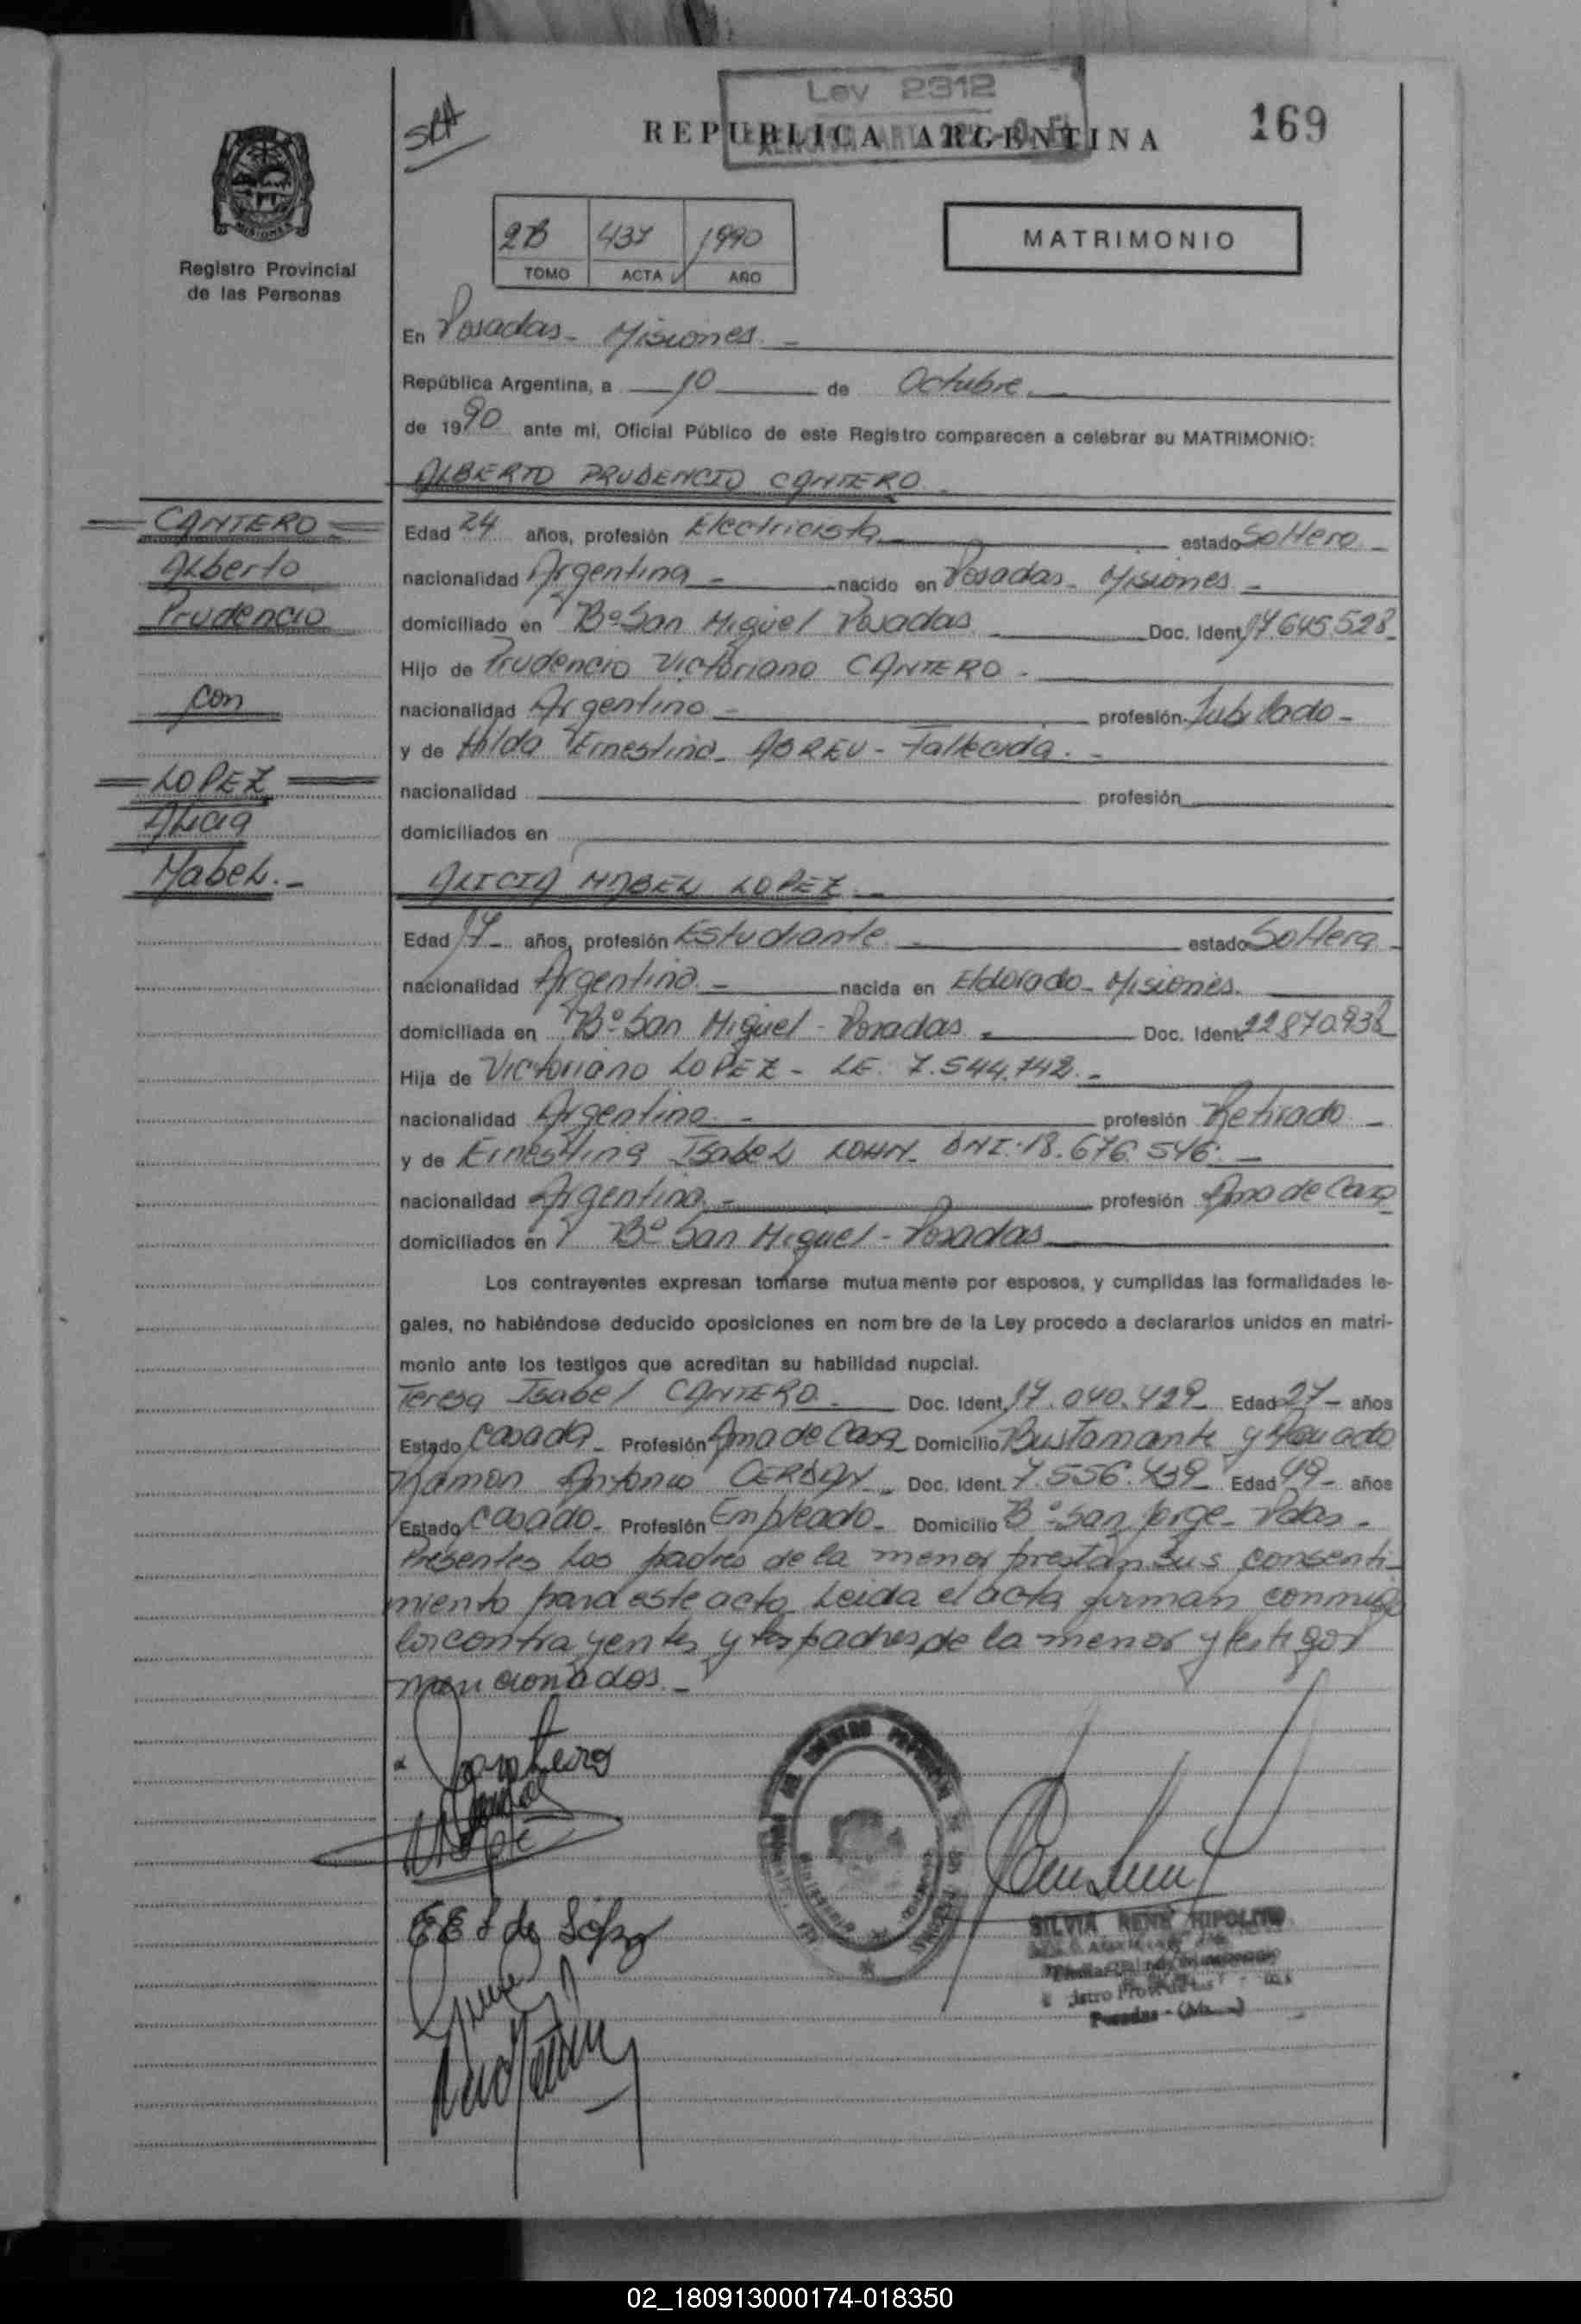 Ley 2312
REPUBLICA ARGENTINA
169
2B 437 1990
TOMO ACTA AÑO
MATRIMONIO
Registro Provincial
de las Personas
En Posadas - Misiones. -
República Argentina, a 10 de Octubre. -
de 1990 ante mi, Oficial Público de este Registro comparecen a celebrar su MATRIMONIO:
ALBERTO PRUDENCIO CANTERO. -
CANTERO
Alberto
Prudencio
con
LOPEZ
Alicia
Mabel. -
Edad 24 años, profesión Electricista estado Soltero -
nacionalidad Argentina - nacido en Posadas - Misiones -
domiciliado en Bº San Miguel Posadas Doc. Ident. 17.645.528
Hijo de Prudencio Victoriano CANTERO -
nacionalidad Argentino - profesión Jubilado -
y de Hilda Ernestina - ABREU - Fallecida. -
nacionalidad profesión
domiciliados en
ALICIA MABEL LOPEZ. -
Edad 17 - años, profesión Estudiante - estado Soltera -
nacionalidad Argentina. - nacida en Eldorado - Misiones.
domiciliada en Bº San Miguel - Posadas - Doc. Ident. 22.870.938
Hija de Victoriano LOPEZ - LE. 7.544.742. -
nacionalidad Argentino. - profesión Retirado -
y de Ernestina Isabel LOHN. DNI. 18.676.546. -
nacionalidad Argentina. - profesión Ama de Casa
domiciliados en Bº San Miguel - Posadas
Los contrayentes expresan tomarse mutuamente por esposos, y cumplidas las formalidades le-
gales, no habiéndose deducido oposiciones en nombre de la Ley procedo a declararlos unidos en matri-
monio ante los testigos que acreditan su habilidad nupcial.
Teresa Isabel CANTERO. - Doc. Ident. 17.040.429 - Edad 27 - años
Estado Casada - Profesión Ama de Casa Domicilio Bustamante y
Ramon Antonio Doc. Ident. 7.556.439 - Edad 49 - años
Estado Casado - Profesión Empleado - Domicilio Bº San Jorge - Pdas -
Presentes los padres de la menor prestan sus consenti-
miento para este acto Leida el acta firman conmigo
los contrayentes y los padres de la menor y testigos
mencionados. -
Cantero
E E L de López
SILVIA RENE HIPOLITO
Posadas -
02_180913000174-018350